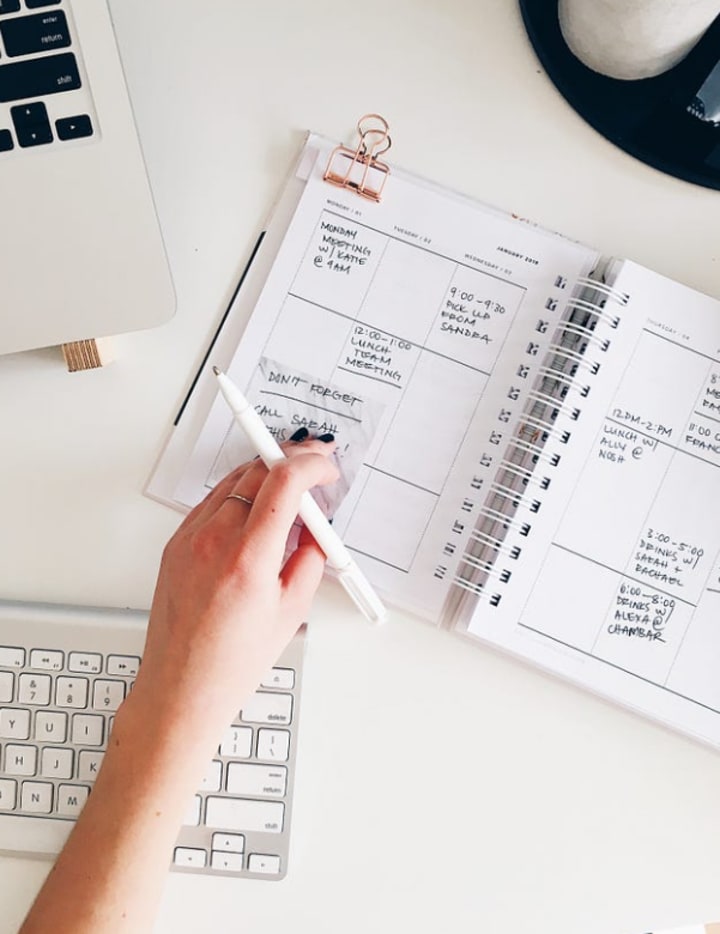 enter
return
shift
MONDAY / 01
TUESDAY / 02
JANUARY 2018
WEDNESDAY / 03
MONDAY
MEETING
W/ KATIE
@ 9AM
9:00-9:30
PICK UP
FROM
SANDRA
12:00-1:00
LUNCH
TEAM
MEETING
DON'T FORGET
CALL SARAH
THURSDAY / 04
12PM-2PM
LUNCH W/
ALLY @
NOSH
3:00-5:00
DRINKS W/
SARAH +
RACHAEL
6:00-8:00
DRINKS W/
ALEXA @
CHAMBAR
& * (
7 8 9
Y U I
H J K
B N M
delete
enter
return
shift